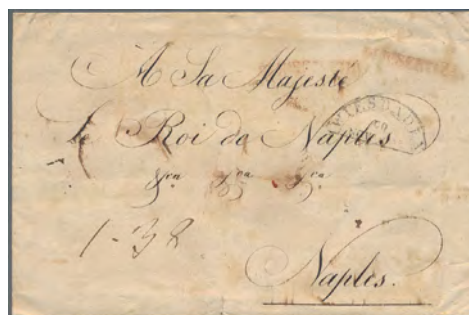 A Sa Majeste
le Roi de Naples
WIESBADEN
1-38
Naples.